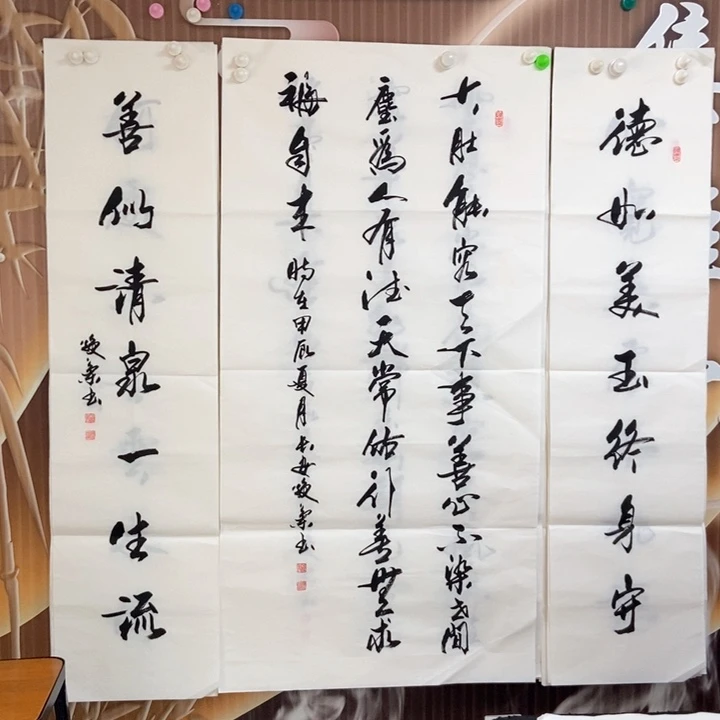 德如美玉终身守
大肚能容天下事善心不染世間
塵爲人有德天常佑行善無求
福自来 时在甲辰夏月长安 书
善似清泉一生流
书